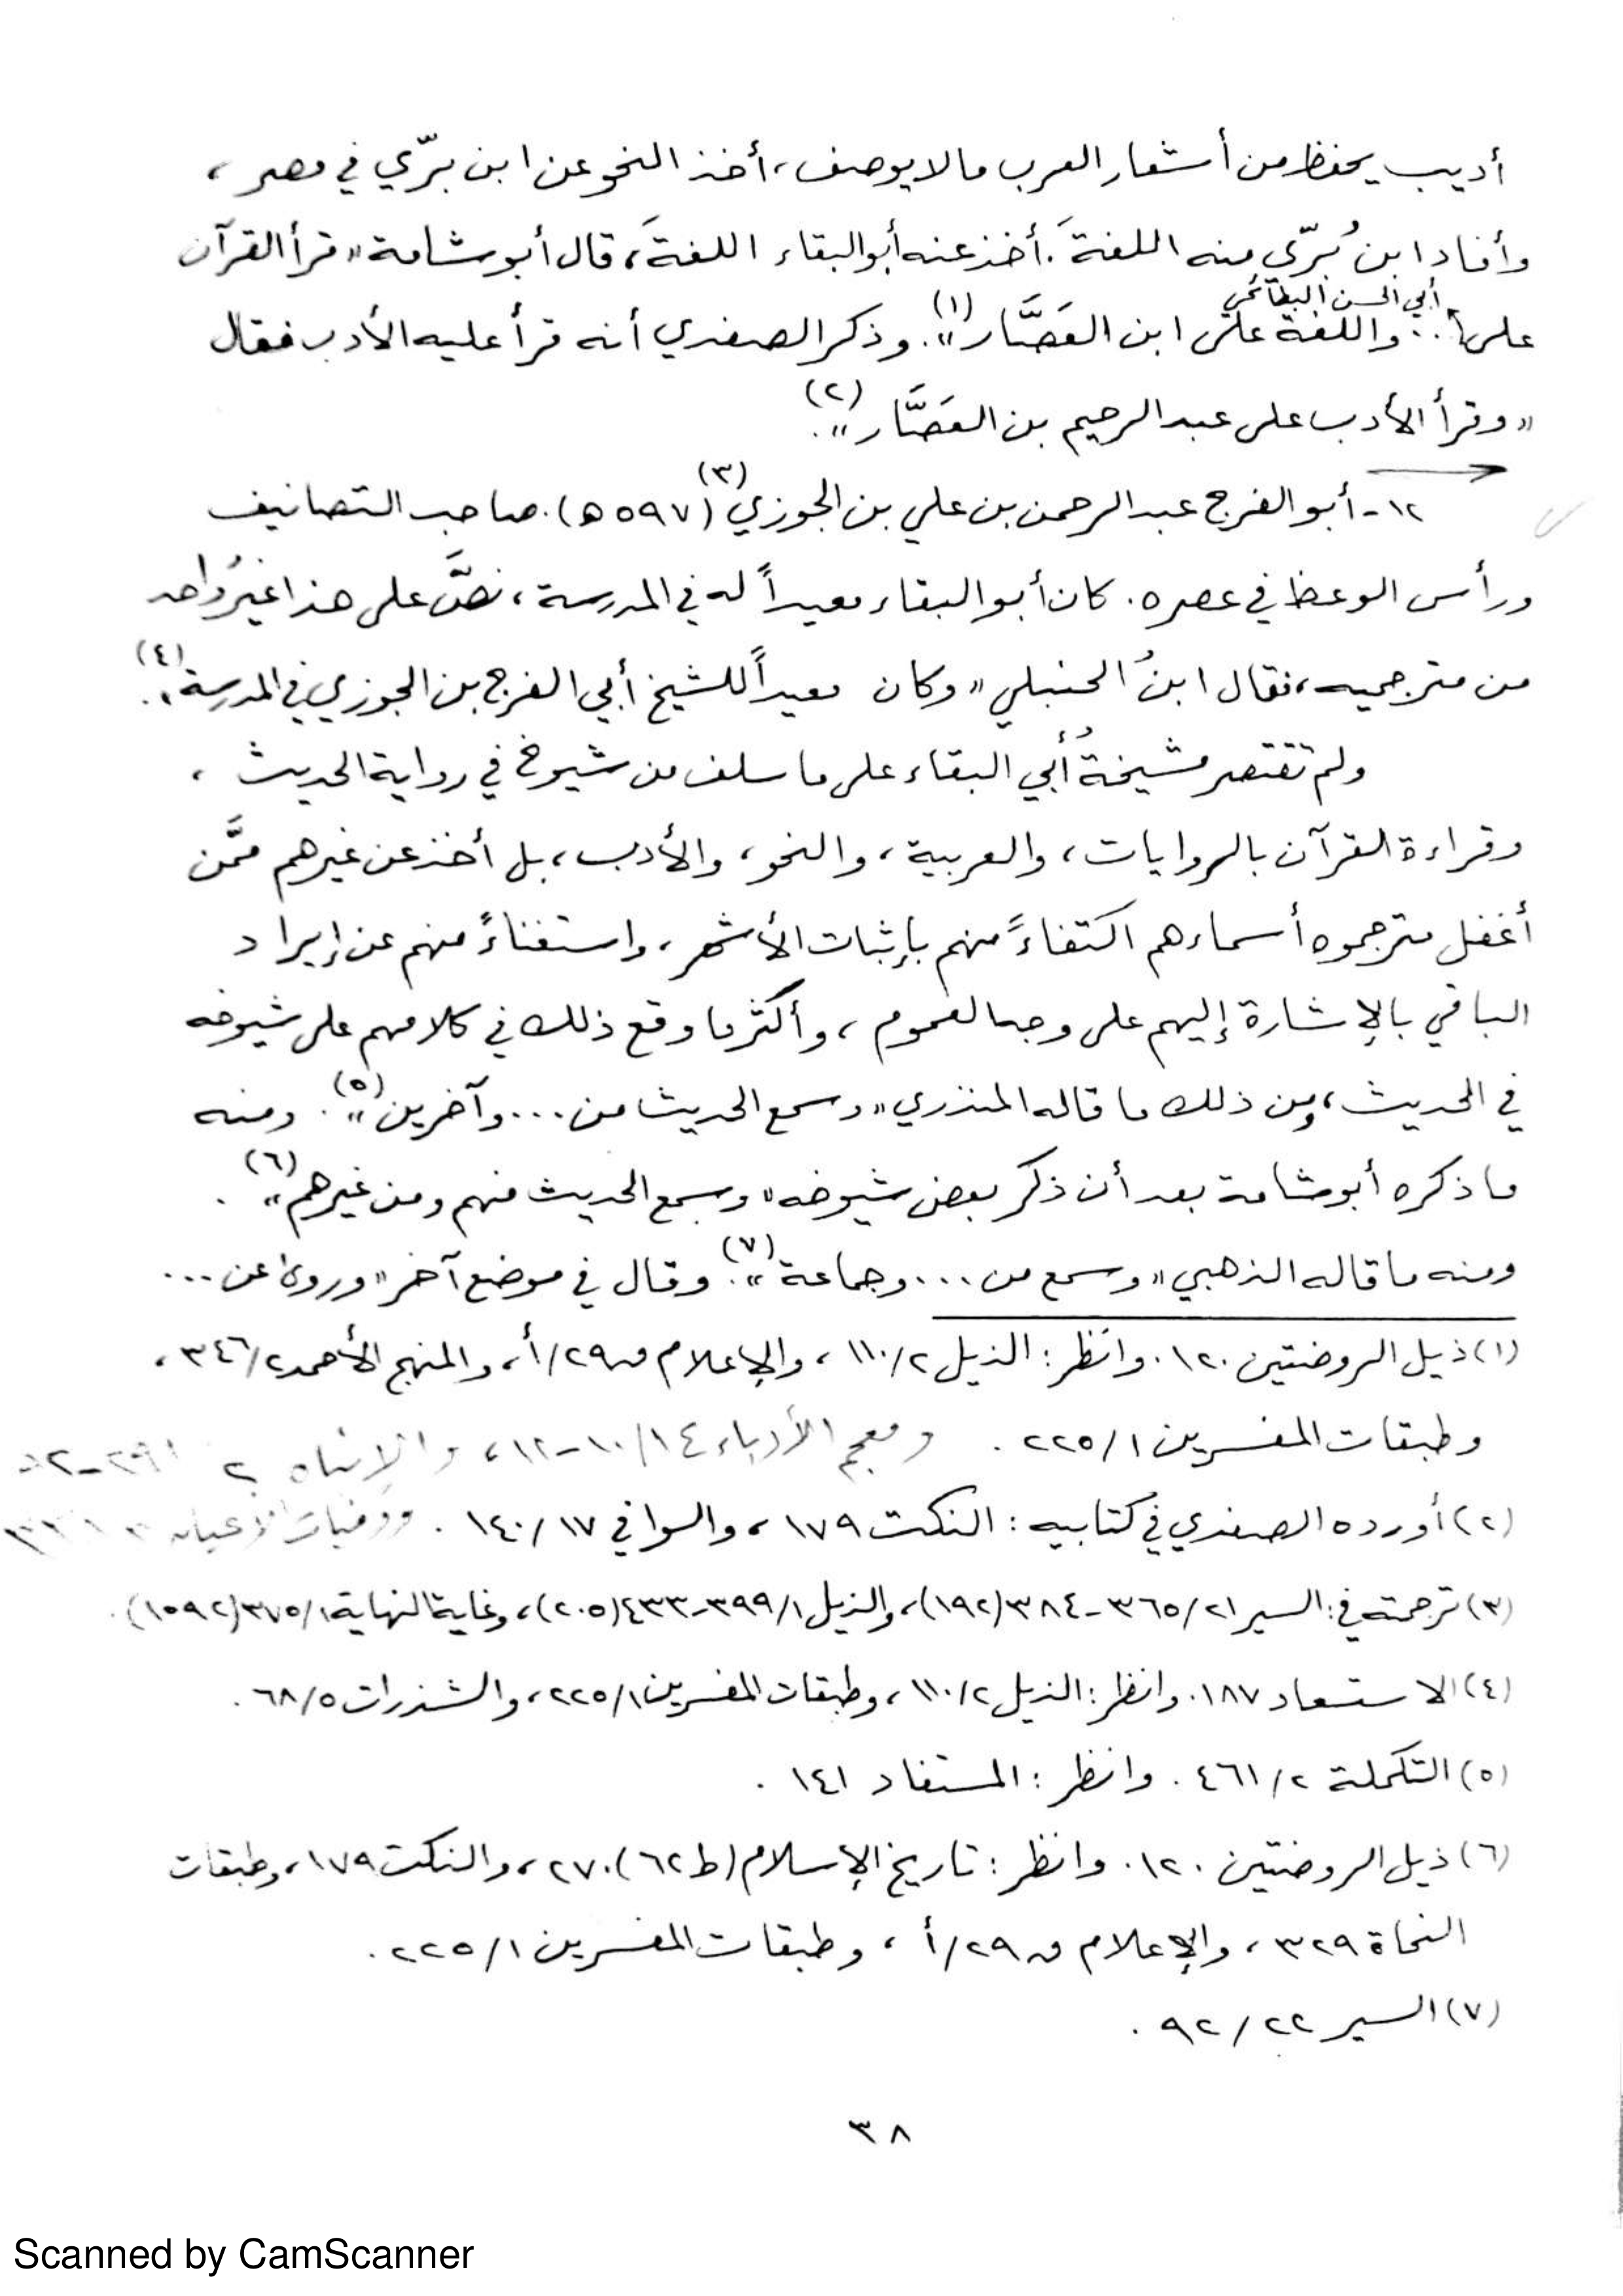 أديب يحفظ من أشعار العرب ما لا يوصف، أخذ النحو عن ابن برّي في مصر،
وأفاد ابنُ بُرّي منه اللغةَ. أخذ عنه أبو البقاء اللغةَ، قال أبو شامة «قرأ القرآن
أبي الحسن البطائحي
على ... واللغة على ابن العَصَّار»(١). وذكر الصفدي أنه قرأ عليه الأدب فقال
«وقرأ الأدب على عبد الرحيم بن العَصَّار»(٢).
١٢- أبو الفرج عبد الرحمن بن علي بن الجوزي(٣) (٥٩٧ ه). صاحب التصانيف
ورأس الوعظ في عصره. كان أبو البقاء معيداً له في المدرسة، نصَّ على هذا غيرُ واحد
من مترجميه، فقال ابنُ الحنبلي «وكان معيداً للشيخ أبي الفرج بن الجوزي في المدرسة»(٤).
ولم تقتصر مشيخةُ أبي البقاء على ما سلف من شيوخ في رواية الحديث،
وقراءة القرآن بالروايات، والعربية، والنحو، والأدب، بل أخذ عن غيرهم ممَّن
أغفل مترجموه أسماءهم اكتفاءً منهم بإثبات الأشهر، واستغناءً منهم عن إيراد
الباقي بالإشارة إليهم على وجه العموم، وأكثر ما وقع ذلك في كلامهم على شيوخه
في الحديث، ومن ذلك ما قاله المنذري «وسمع الحديث من ... وآخرين»(٥). ومنه
ما ذكره أبو شامة بعد أن ذكر بعض شيوخه «وسمع الحديث منهم ومن غيرهم»(٦).
ومنه ما قاله الذهبي «وسمع من ... وجماعة»(٧). وقال في موضع آخر «وروى عن ...
(١) ذيل الروضتين ١٢٠. وانظر: الذيل ١١٠/٢، والإعلام ق ٢٩/أ، والمنهج الأحمد ٣٤٦/٢،
وطبقات المفسرين ٢٢٥/١. ومعجم الأدباء ١٠/١٤-١٢، والإنباه ٢
(٢) أورده الصفدي في كتابيه: النكت ١٧٩، والوافي ١٤٠/١٧. ووفيات الأعيان
(٣) ترجمته في: السير ٣٦٥/٢١-٣٨٤ (١٩٢)، والذيل ٣٩٩/١-٤٣٣ (٢٠٥)، وغاية النهاية ٣٧٥/١ (١٥٩٢).
(٤) الاستسعاد ١٨٧. وانظر: الذيل ١١٠/٢، وطبقات المفسرين ٢٢٥/١، والشذرات ٦٨/٥.
(٥) التكملة ٤٦١/٢. وانظر: المستفاد ١٤١.
(٦) ذيل الروضتين ١٢٠. وانظر: تاريخ الإسلام (ط ٦٢) ٢٧٠، والنكت ١٧٩، وطبقات
النحاة ٣٢٩، والإعلام ق ٢٩/أ، وطبقات المفسرين ٢٢٥/١.
(٧) السير ٩٢/٢٢.
٣٨
Scanned by CamScanner